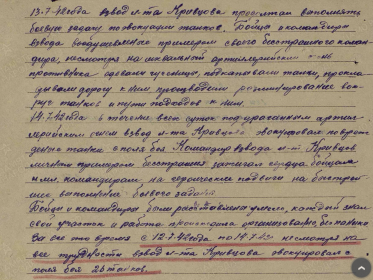 13.7.42 года взвод л-та Кривцова продолжал выполнять
боевую задачу по эвакуации танков. Бойцы и командиры
взвода воодушевленные примером своего бесстрашного коман-
дира, несмотря на сильный артиллерийский огонь
противника одевали гусеницы, подкапывали танки, прокла-
дывали дорогу к ним производили разминирование вок-
руг танков и пути подходов к ним.
14.7.42 года в течение всех суток под ураганным артил-
лерийским огнем взвод л-та Кривцова эвакуировал повреж-
денные танки с поля боя. Командир взвода л-т Кривцов
личным примером бесстрашия зажигал сердца бойцам
и мл. командирам на героические подвиги на быстрей-
шее выполнение боевого задания.
Бойцы и командиры были расставлены умело, каждый знал
свой участок и работа проходила организованно, без паники
За все это время с 12.7.42 года по 14.7.42г несмотря на
все трудности взвод л-та Кривцова эвакуировал с
поля боя 26 танков.